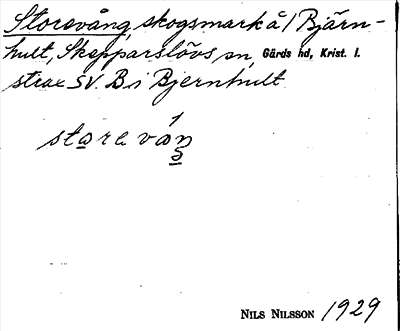 Storevång skogsmark å 1 Bjärn-
hult, Skepparslövs sn, Gärds hd, Krist. l.
strax SV. B i Bjernhult
starə váŋ
NILS NILSSON 1929